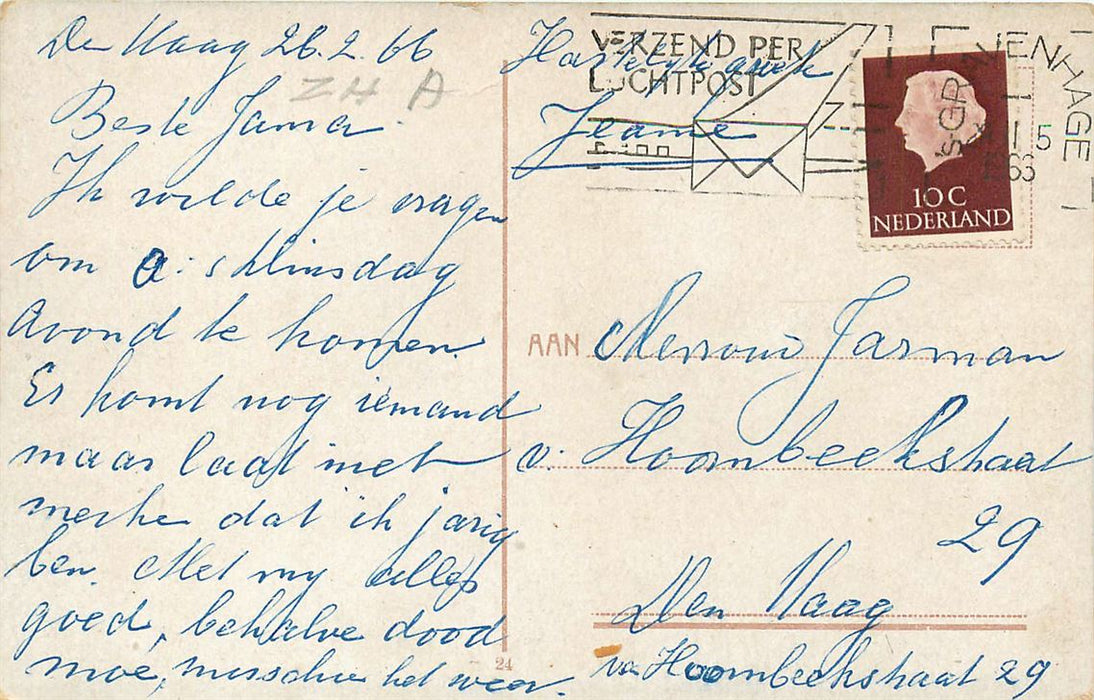 Den Haag 26.2.66
ZH A
Beste Jama
Ik wilde je vragen
om a.s. Dinsdag
Avond te komen.
Er komt nog iemand
maar laat niet
merke dat ik jarig
ben. Met my alles
goed, behalve dood
moe, misschie het weer.
Hartelyke groet
Jeanne
VERZEND PER
LUCHTPOST
'S-GRAVENHAGE
10C
NEDERLAND
AAN Mevrouw Jarman
v. Hoornbeekstraat
29
Den Haag
va Hoornbeekstraat 29
24